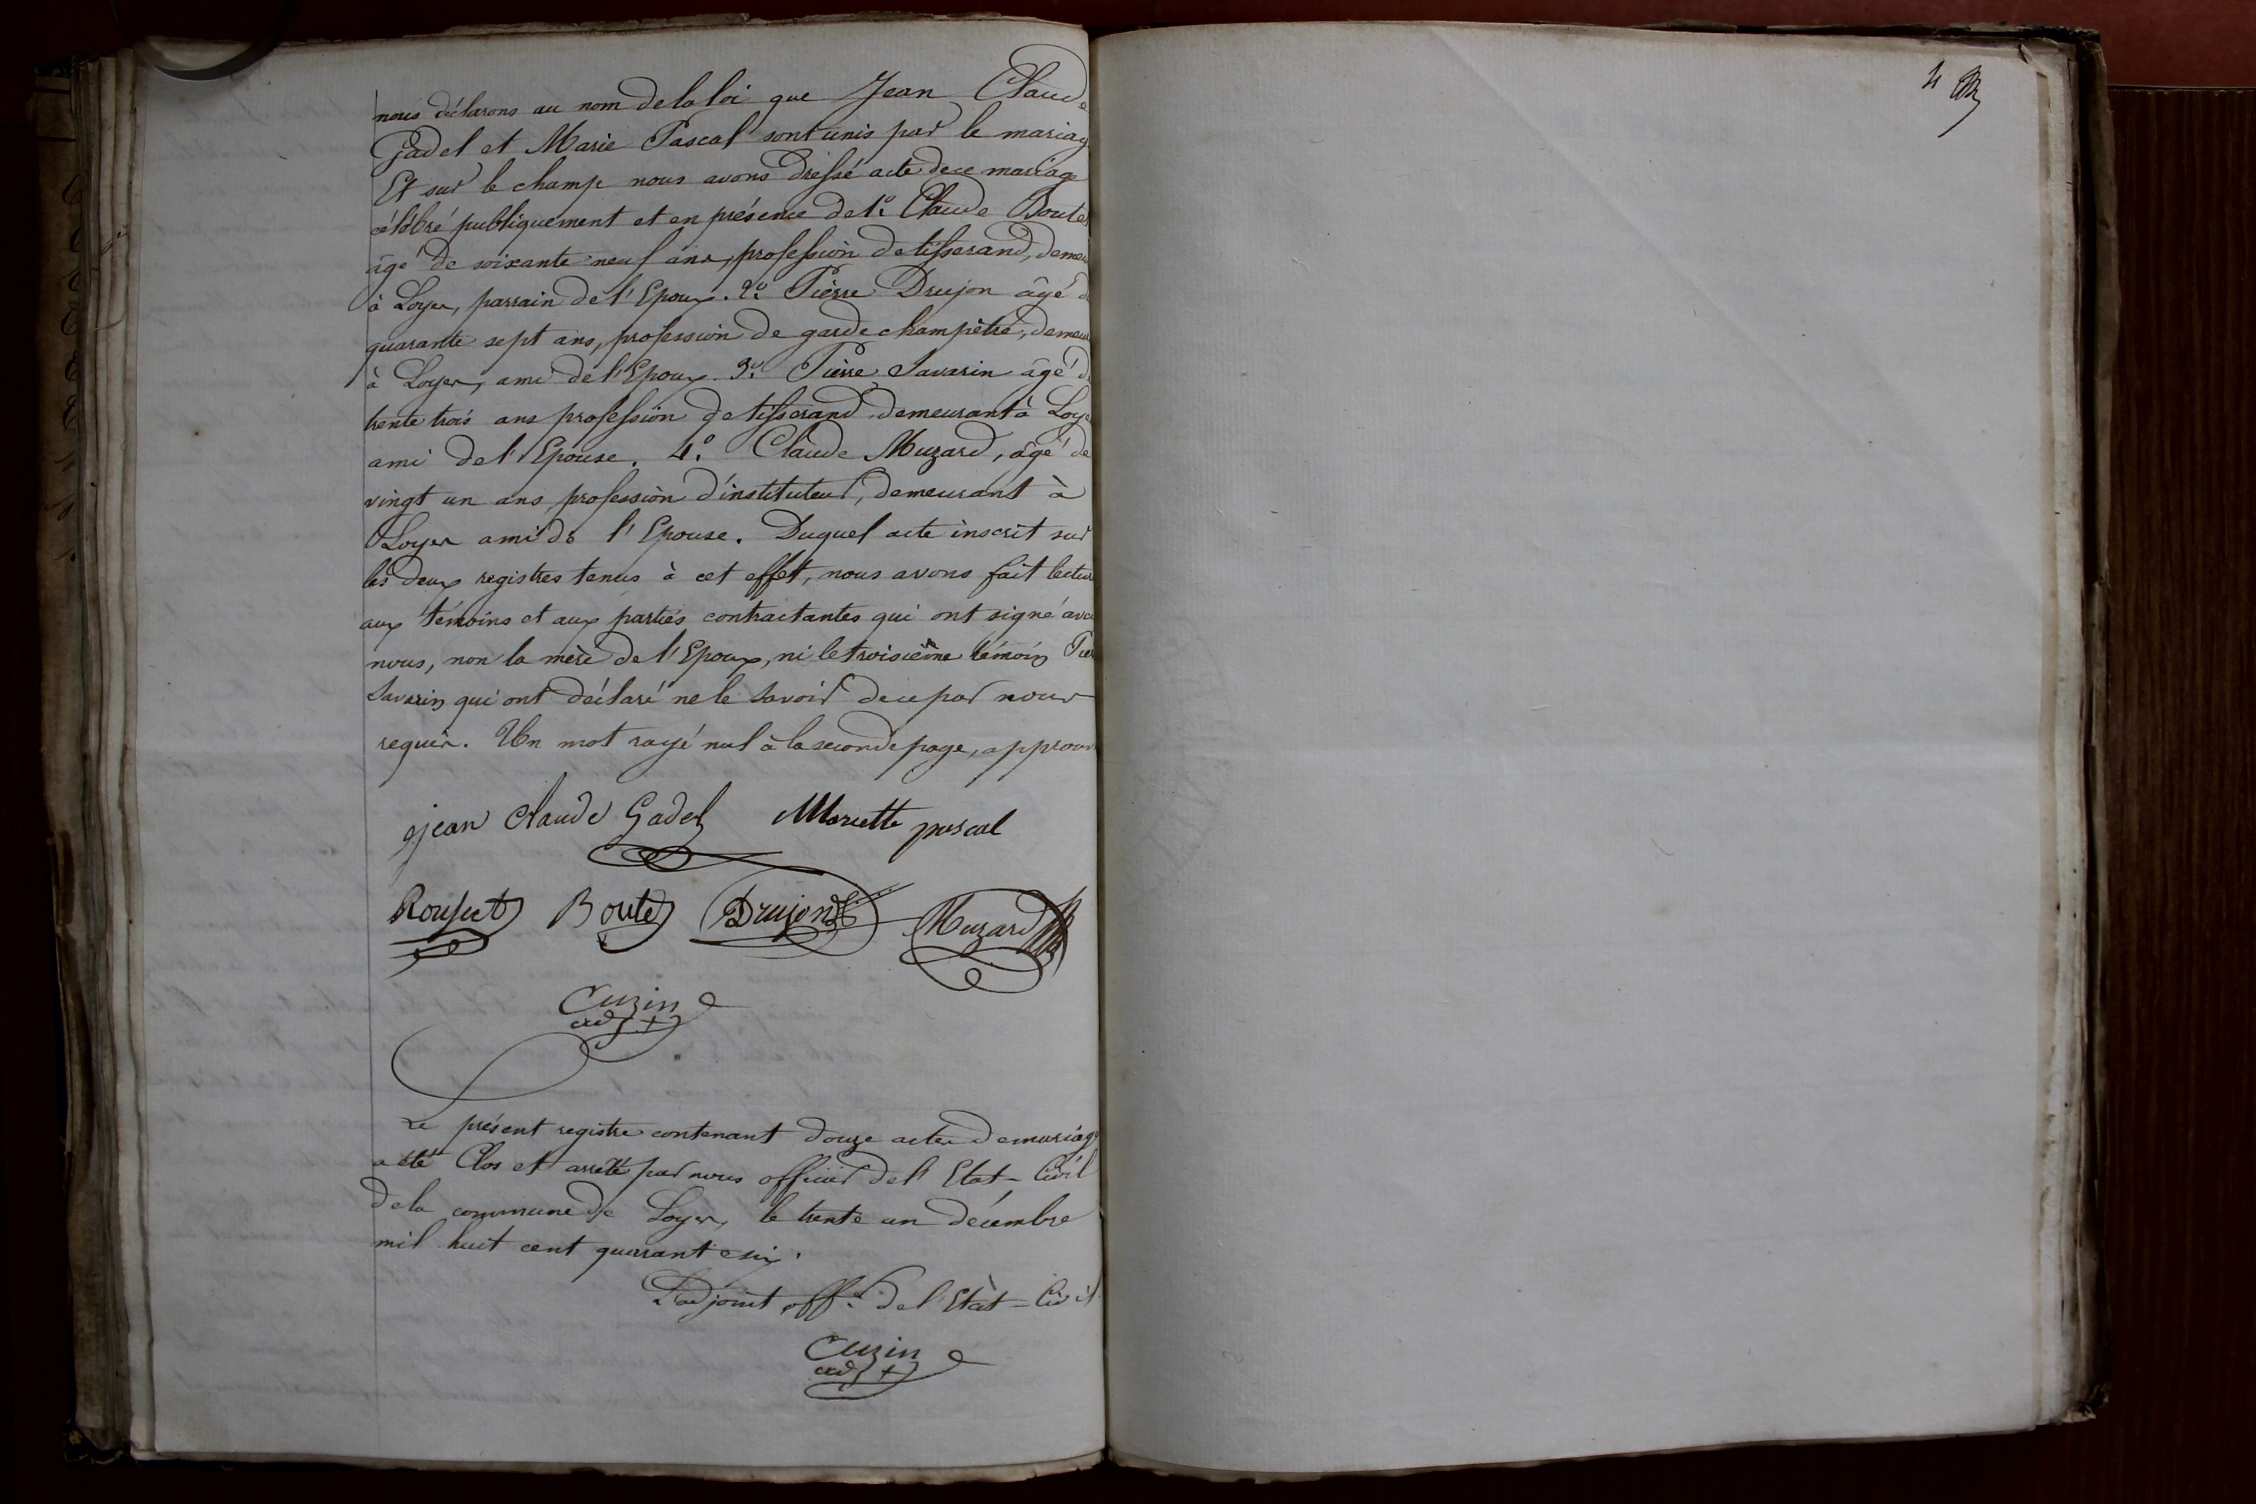 nous déclarons au nom de la loi que Jean Claude
Gadel et Marie Pascal sont unis par le mariag
Et sur le champ nous avons dressé acte de ce mariage
célébré publiquement et en présence de 1º. Claude Boute
âgé de soixante neuf ans, profession de tisserand, demeu
à Loyer, parrain de l'Epoux. 2º. Pierre Drujon âgé d
quarante sept ans, profession de garde champètre, demeu
à Loyer, ami de l'Epoux. 3º. Pierre Savarin âgé d
trente trois ans profession de tisserand demeurant à Loye
ami de l'Epouse. 4º. Claude Muzard, âgé de
vingt un ans, profession d'instituteur, demeurant à
Loyer ami de l'Epouse. Duquel acte inscrit sur
les deux registres tenus à cet effet, nous avons fait lectur
aux témoins et aux parties contractantes qui ont signé avec
nous, non la mère de l'Epoux, ni le troisième témoin Pier
Savarin qui ont déclaré ne le savoir de ce par nous
requis. Un mot rayé nul à la seconde page, approuv
jean claude Gadel Mariette pascal
Boute Drujon Muzard
Cuzin
adj
Le présent registre contenant douze actes de mariage
a été Clos et arrêté par nous officier de l'Etat-Civil
de la commune de Loyer, le trente un décembre
mil huit cent quarante six.
L'adjoint off. de l'Etat-Civil
Cuzin
adj
4